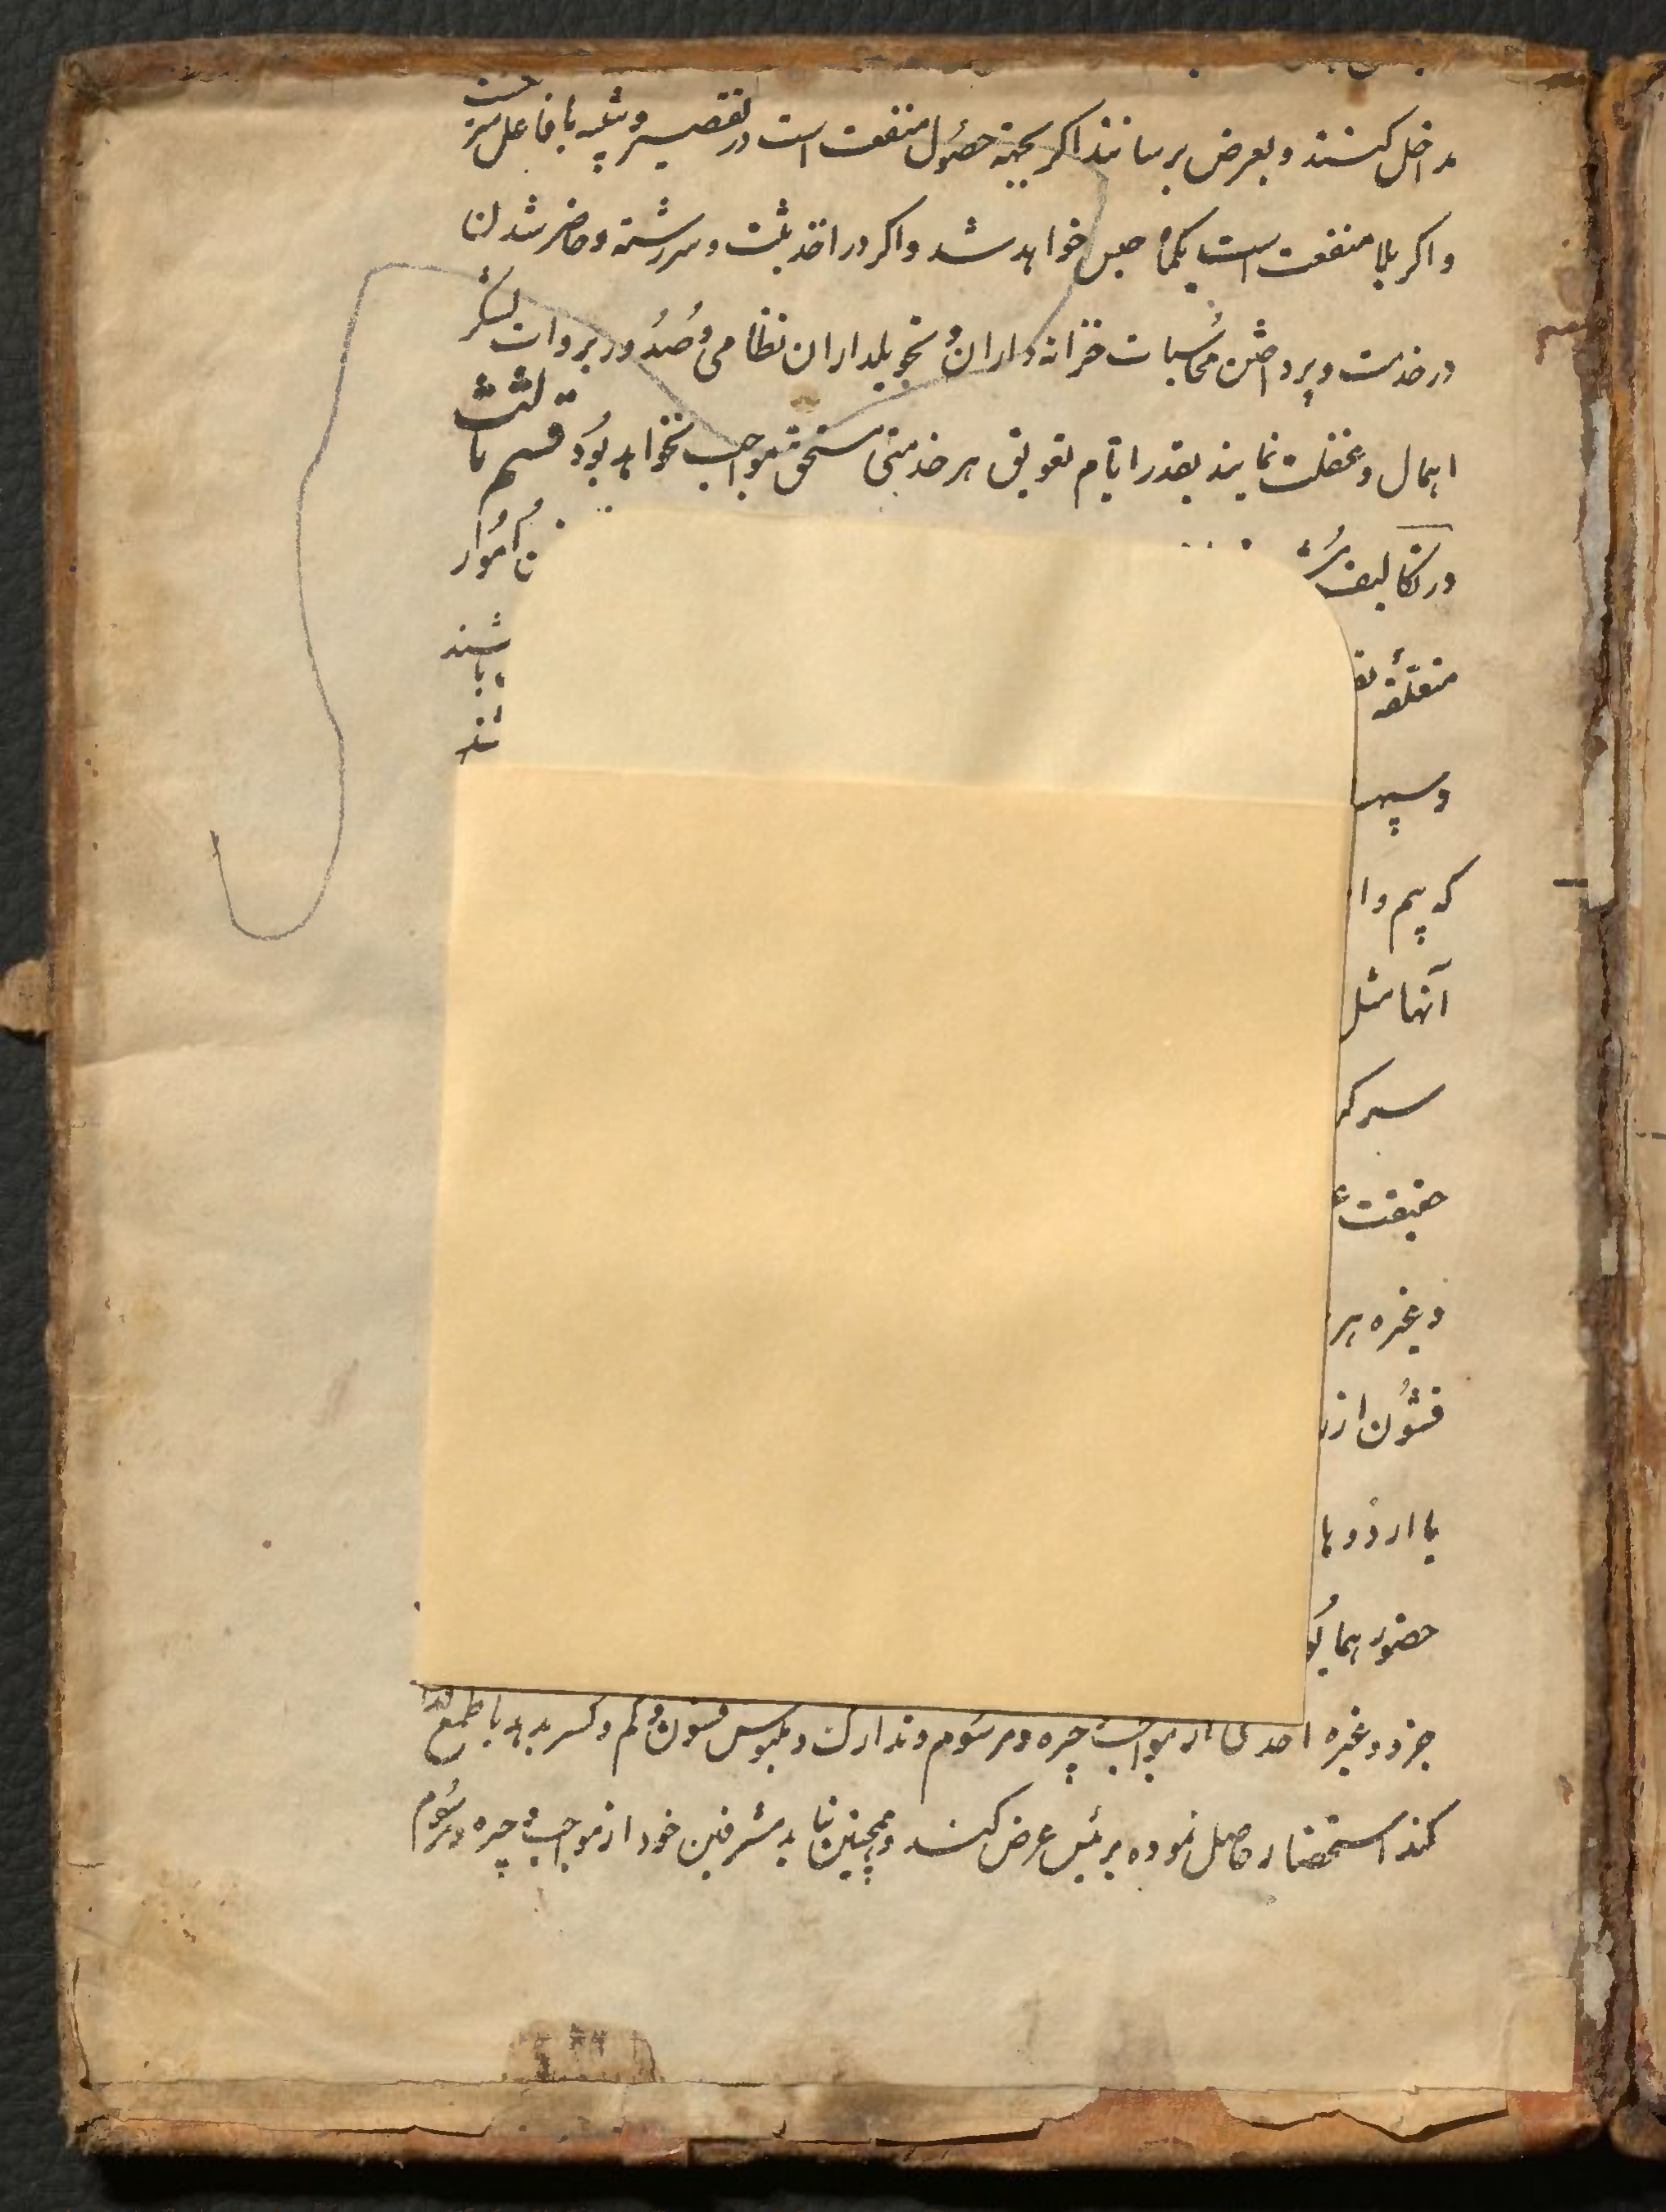 مداخل کنند و بعرض برسانند اگر بجهة حصول منفعت است در تقصیر و تنبیه با فاعل
و اگر بلا منفعت است یکماه حبس خواهد شد و اگر در اخذ ثبت و سررشته و حاضر شدن
در خدمت و پرداختن محاسبات خزانه داران و تحویلداران نظامی و صدور بروات لشکر
اهمال و غفلت نمایند بقدر ایام تعویق هر خدمتی مستحق مواجب نخواهد بود قسم ثالث
در تکالیف امور
متعلقه باشند
و سپه
که بیم و ا
آنها مثل
سرکر
حقیقت
و غیره هر
قشون از
با اردو
حضور همایو
جزو و غیره احدی از مواجب و جیره و مرسوم و تدارک و ملبوس قشون کم و کسر بدهد یا طمع
کند استحضار حاصل نموده برئیس عرض کنند و همچنین باید مشرفین خود از مواجب و جیره و مرسوم